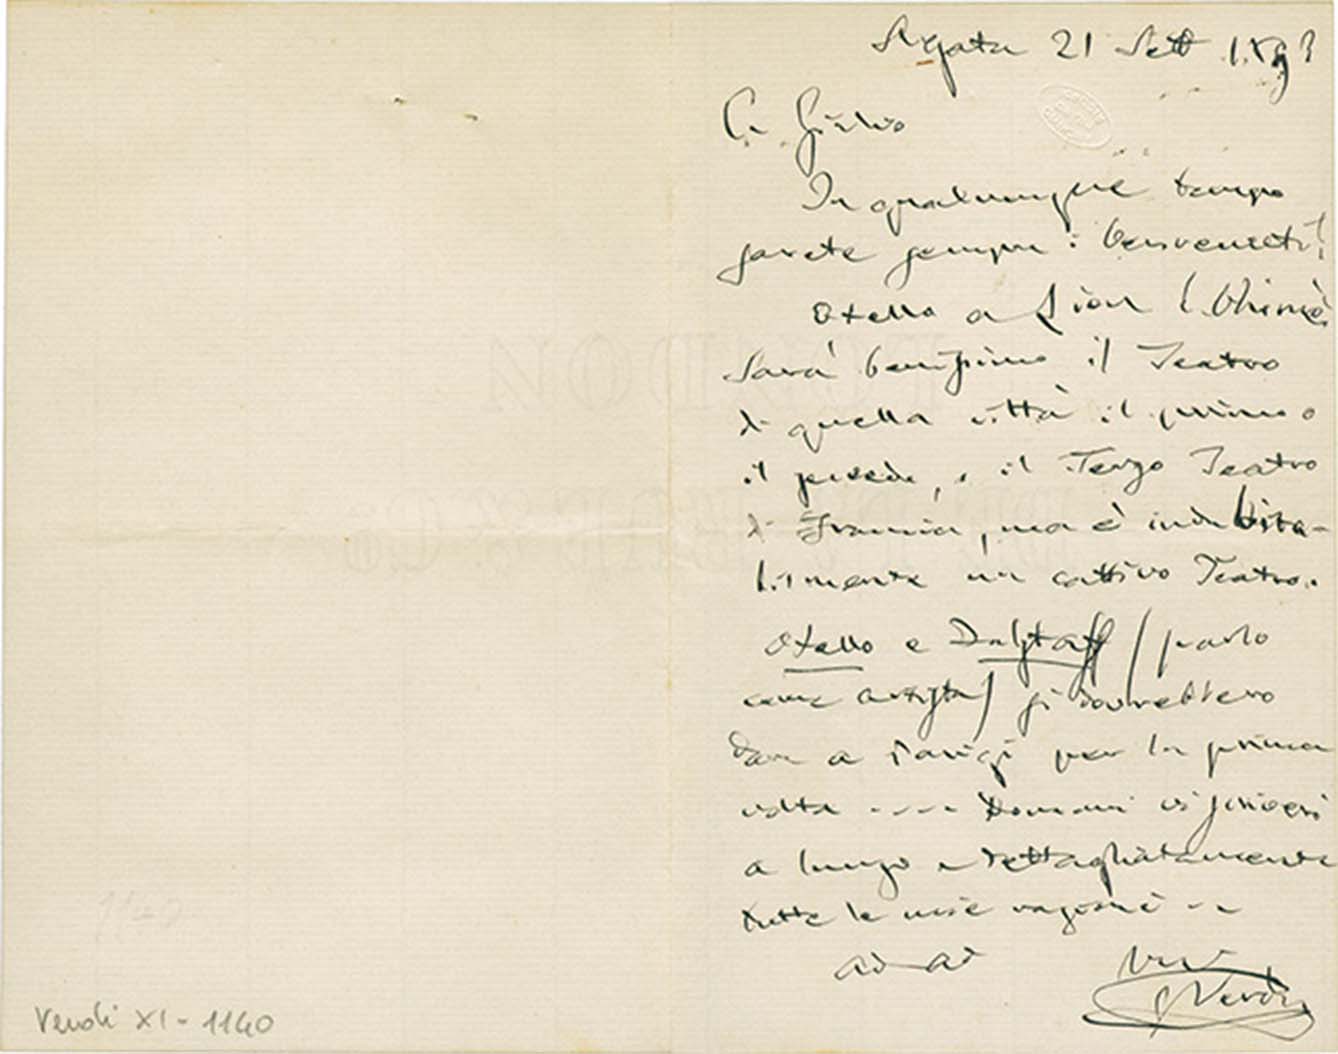 S. Agata 21 Sett 1893
Ca Giulio
In qualunque tempo
sarete sempre i benvenuti!
Otello a Lion! Ohimè!
Sarà benissimo il Teatro
di quella città il primo o
il secondo, o il Terzo Teatro
di Francia, ma è indubita-
bilmente un cattivo Teatro..
Otello e Falstaff (parlo
come artista) si dovrebbero
dare a Parigi per la prima
volta .... Domani vi scriverò
a lungo e dettagliatamente
tutte le mie ragioni ..
ad ad
G Verdi
LONDON
DE LA RUE & CO
1140
Verdi XI - 1140